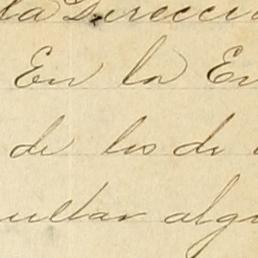 la Direcci
En la En
de los de
ultar algu